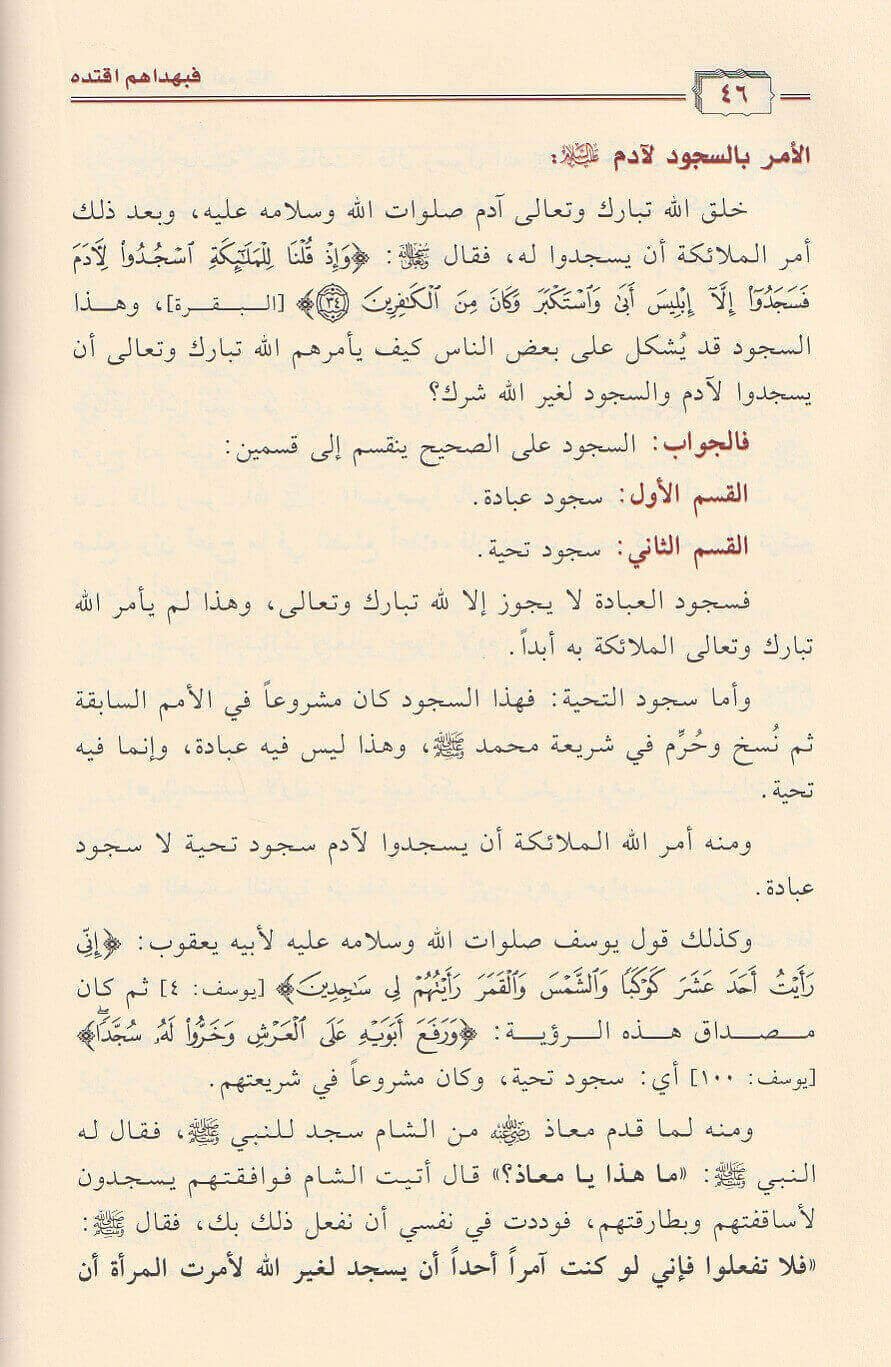 ٤٦
فبهداهم اقتده
الأمر بالسجود لآدم عليه السلام:
خلق الله تبارك وتعالى آدم صلوات الله وسلامه عليه، وبعد ذلك
أمر الملائكة أن يسجدوا له، فقال سبحانه وتعالى: ﴿وَإِذْ قُلْنَا لِلْمَلَٰٓئِكَةِ ٱسْجُدُوا۟ لِءَادَمَ
فَسَجَدُوٓا۟ إِلَّآ إِبْلِيسَ أَبَىٰ وَٱسْتَكْبَرَ وَكَانَ مِنَ ٱلْكَٰفِرِينَ ٣٤﴾ [البقرة]، وهذا
السجود قد يُشكل على بعض الناس كيف يأمرهم الله تبارك وتعالى أن
يسجدوا لآدم والسجود لغير الله شرك؟
فالجواب: السجود على الصحيح ينقسم إلى قسمين:
القسم الأول: سجود عبادة.
القسم الثاني: سجود تحية.
فسجود العبادة لا يجوز إلا لله تبارك وتعالى، وهذا لم يأمر الله
تبارك وتعالى الملائكة به أبداً.
وأما سجود التحية: فهذا السجود كان مشروعاً في الأمم السابقة
ثم نُسخ وحُرِّم في شريعة محمد ﷺ، وهذا ليس فيه عبادة، وإنما فيه
تحية.
ومنه أمر الله الملائكة أن يسجدوا لآدم سجود تحية لا سجود
عبادة.
وكذلك قول يوسف صلوات الله وسلامه عليه لأبيه يعقوب: ﴿إِنِّى
رَأَيْتُ أَحَدَ عَشَرَ كَوْكَبًا وَٱلشَّمْسَ وَٱلْقَمَرَ رَأَيْتُهُمْ لِى سَٰجِدِينَ﴾ [يوسف: ٤] ثم كان
مصداق هذه الرؤية: ﴿وَرَفَعَ أَبَوَيْهِ عَلَى ٱلْعَرْشِ وَخَرُّوا۟ لَهُۥ سُجَّدًا﴾
[يوسف: ١٠٠] أي: سجود تحية، وكان مشروعاً في شريعتهم.
ومنه لما قدم معاذ رضي الله عنه من الشام سجد للنبي ﷺ، فقال له
النبي ﷺ: «ما هذا يا معاذ؟» قال أتيت الشام فوافقتهم يسجدون
لأساقفتهم وبطارقتهم، فوددت في نفسي أن نفعل ذلك بك، فقال ﷺ:
«فلا تفعلوا فإني لو كنت آمراً أحداً أن يسجد لغير الله لأمرت المرأة أن